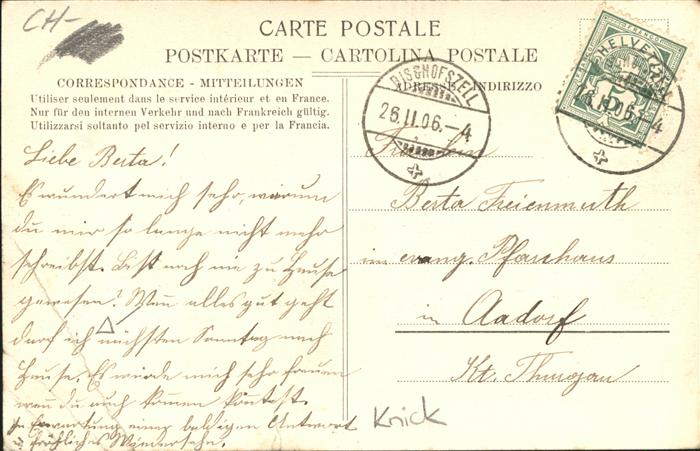 CH-
CARTE POSTALE
POSTKARTE — CARTOLINA POSTALE
CORRESPONDANCE - MITTEILUNGEN
Utiliser seulement dans le service intérieur et en France.
Nur für den internen Verkehr und nach Frankreich gültig.
Utilizzarsi soltanto pel servizio interno e per la Francia.
ADRESSE INDIRIZZO
BISCHOFSZELL
26.II.06.-4
HELVETIA
5
BISCHOFSZELL
26.II.06.-4
Liebe Berta!
Es wundert mich sehr, warum
du mir so lange nicht mehr
schreibst. Bist noch nie zu Hause
gewesen? Wenn alles gut geht
darf ich nächsten Sonntag nach
Hause. Es würde mich sehr freuen
wenn du auch kommen könntest.
In Erwartung einer baldigen Antwort
u. fröhliches Wiedersehn.
Fräulein
Berta Freienmuth
im evang. Pfarrhaus
in Aadorf
Kt. Thurgau
Knick